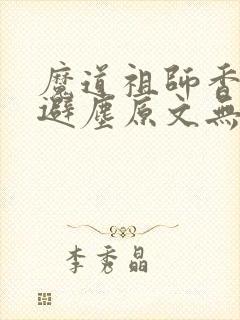 魔道祖師香
避塵原文無
李秀晶